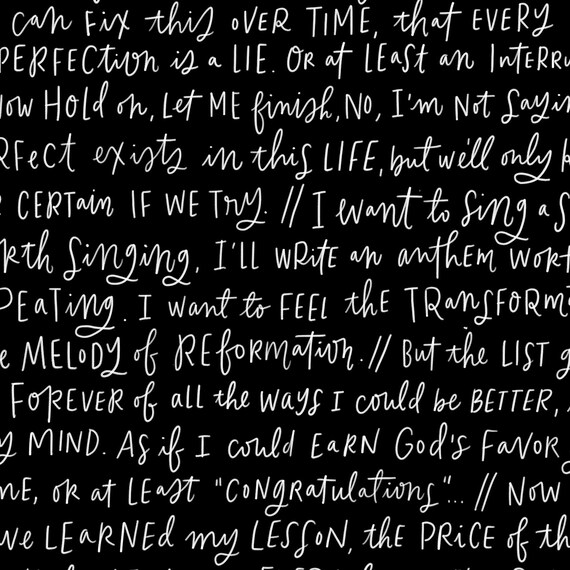 can fix this OVER TIME, that EVERY
PERFECtion is a LIE. OR at LEast an INterru
ow Hold on, Let ME finish, NO, I'm Not Sayin
RFect exists in this LIFE, but we'll only k
CERTain IF WE Try. // I want to Sing a S
rth Singing, I'LL WRitE an anthEm wort
PEaTing. I want to FEEL thE TRanSFORM
e MELODY of REformation. // But the LIST g
FoREVER of all the ways I could be BETTER,
y MIND. AS if I could EaRN God's FavoR
ME, oR at LEast "CoNgratulations"... // Now
ve LEaRNEd my LESSON, thE PRiCE of th